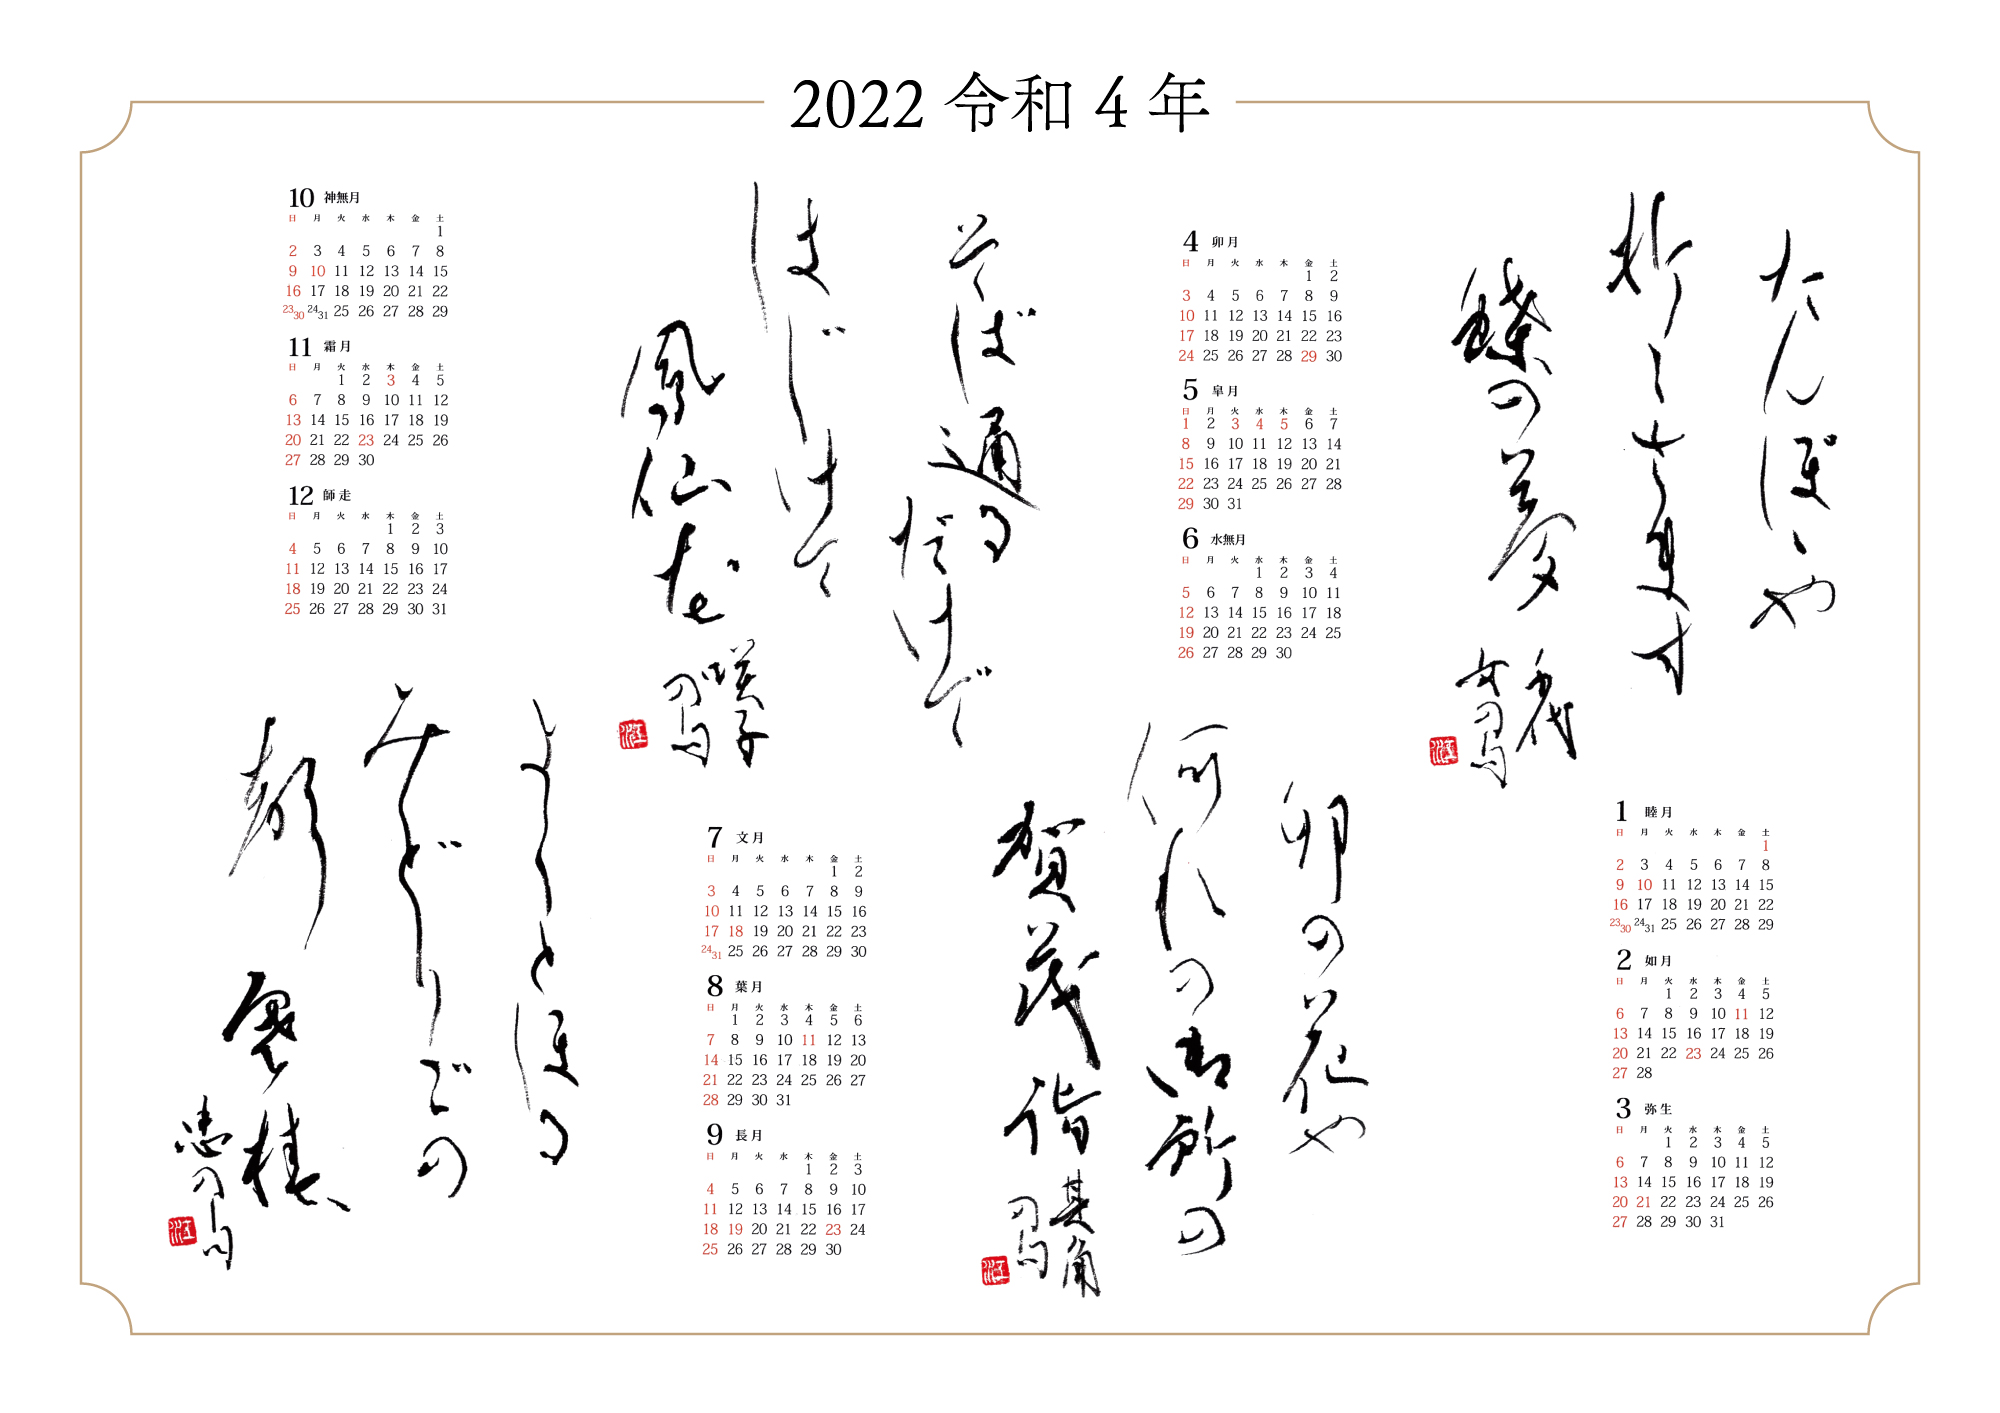 2022 令和 4 年
たんぽゝや
折々さます
蝶の夢
千代
女の句
1 睦月
日 月 火 水 木 金 土
1
2 3 4 5 6 7 8
9 10 11 12 13 14 15
16 17 18 19 20 21 22
23/30 24/31 25 26 27 28 29
2 如月
日 月 火 水 木 金 土
1 2 3 4 5
6 7 8 9 10 11 12
13 14 15 16 17 18 19
20 21 22 23 24 25 26
27 28
3 弥生
日 月 火 水 木 金 土
1 2 3 4 5
6 7 8 9 10 11 12
13 14 15 16 17 18 19
20 21 22 23 24 25 26
27 28 29 30 31
4 卯月
日 月 火 水 木 金 土
1 2
3 4 5 6 7 8 9
10 11 12 13 14 15 16
17 18 19 20 21 22 23
24 25 26 27 28 29 30
5 皐月
日 月 火 水 木 金 土
1 2 3 4 5 6 7
8 9 10 11 12 13 14
15 16 17 18 19 20 21
22 23 24 25 26 27 28
29 30 31
6 水無月
日 月 火 水 木 金 土
1 2 3 4
5 6 7 8 9 10 11
12 13 14 15 16 17 18
19 20 21 22 23 24 25
26 27 28 29 30
卯の花や
何れの御所の
賀茂詣
其角
の句
そば通る
だけで
はじけて
鳳仙花
咲子
の句
7 文月
日 月 火 水 木 金 土
1 2
3 4 5 6 7 8 9
10 11 12 13 14 15 16
17 18 19 20 21 22 23
24/31 25 26 27 28 29 30
8 葉月
日 月 火 水 木 金 土
1 2 3 4 5 6
7 8 9 10 11 12 13
14 15 16 17 18 19 20
21 22 23 24 25 26 27
28 29 30 31
9 長月
日 月 火 水 木 金 土
1 2 3
4 5 6 7 8 9 10
11 12 13 14 15 16 17
18 19 20 21 22 23 24
25 26 27 28 29 30
10 神無月
日 月 火 水 木 金 土
1
2 3 4 5 6 7 8
9 10 11 12 13 14 15
16 17 18 19 20 21 22
23/30 24/31 25 26 27 28 29
11 霜月
日 月 火 水 木 金 土
1 2 3 4 5
6 7 8 9 10 11 12
13 14 15 16 17 18 19
20 21 22 23 24 25 26
27 28 29 30
12 師走
日 月 火 水 木 金 土
1 2 3
4 5 6 7 8 9 10
11 12 13 14 15 16 17
18 19 20 21 22 23 24
25 26 27 28 29 30 31
よくとほる
みどりごの
寒椿
恵の句